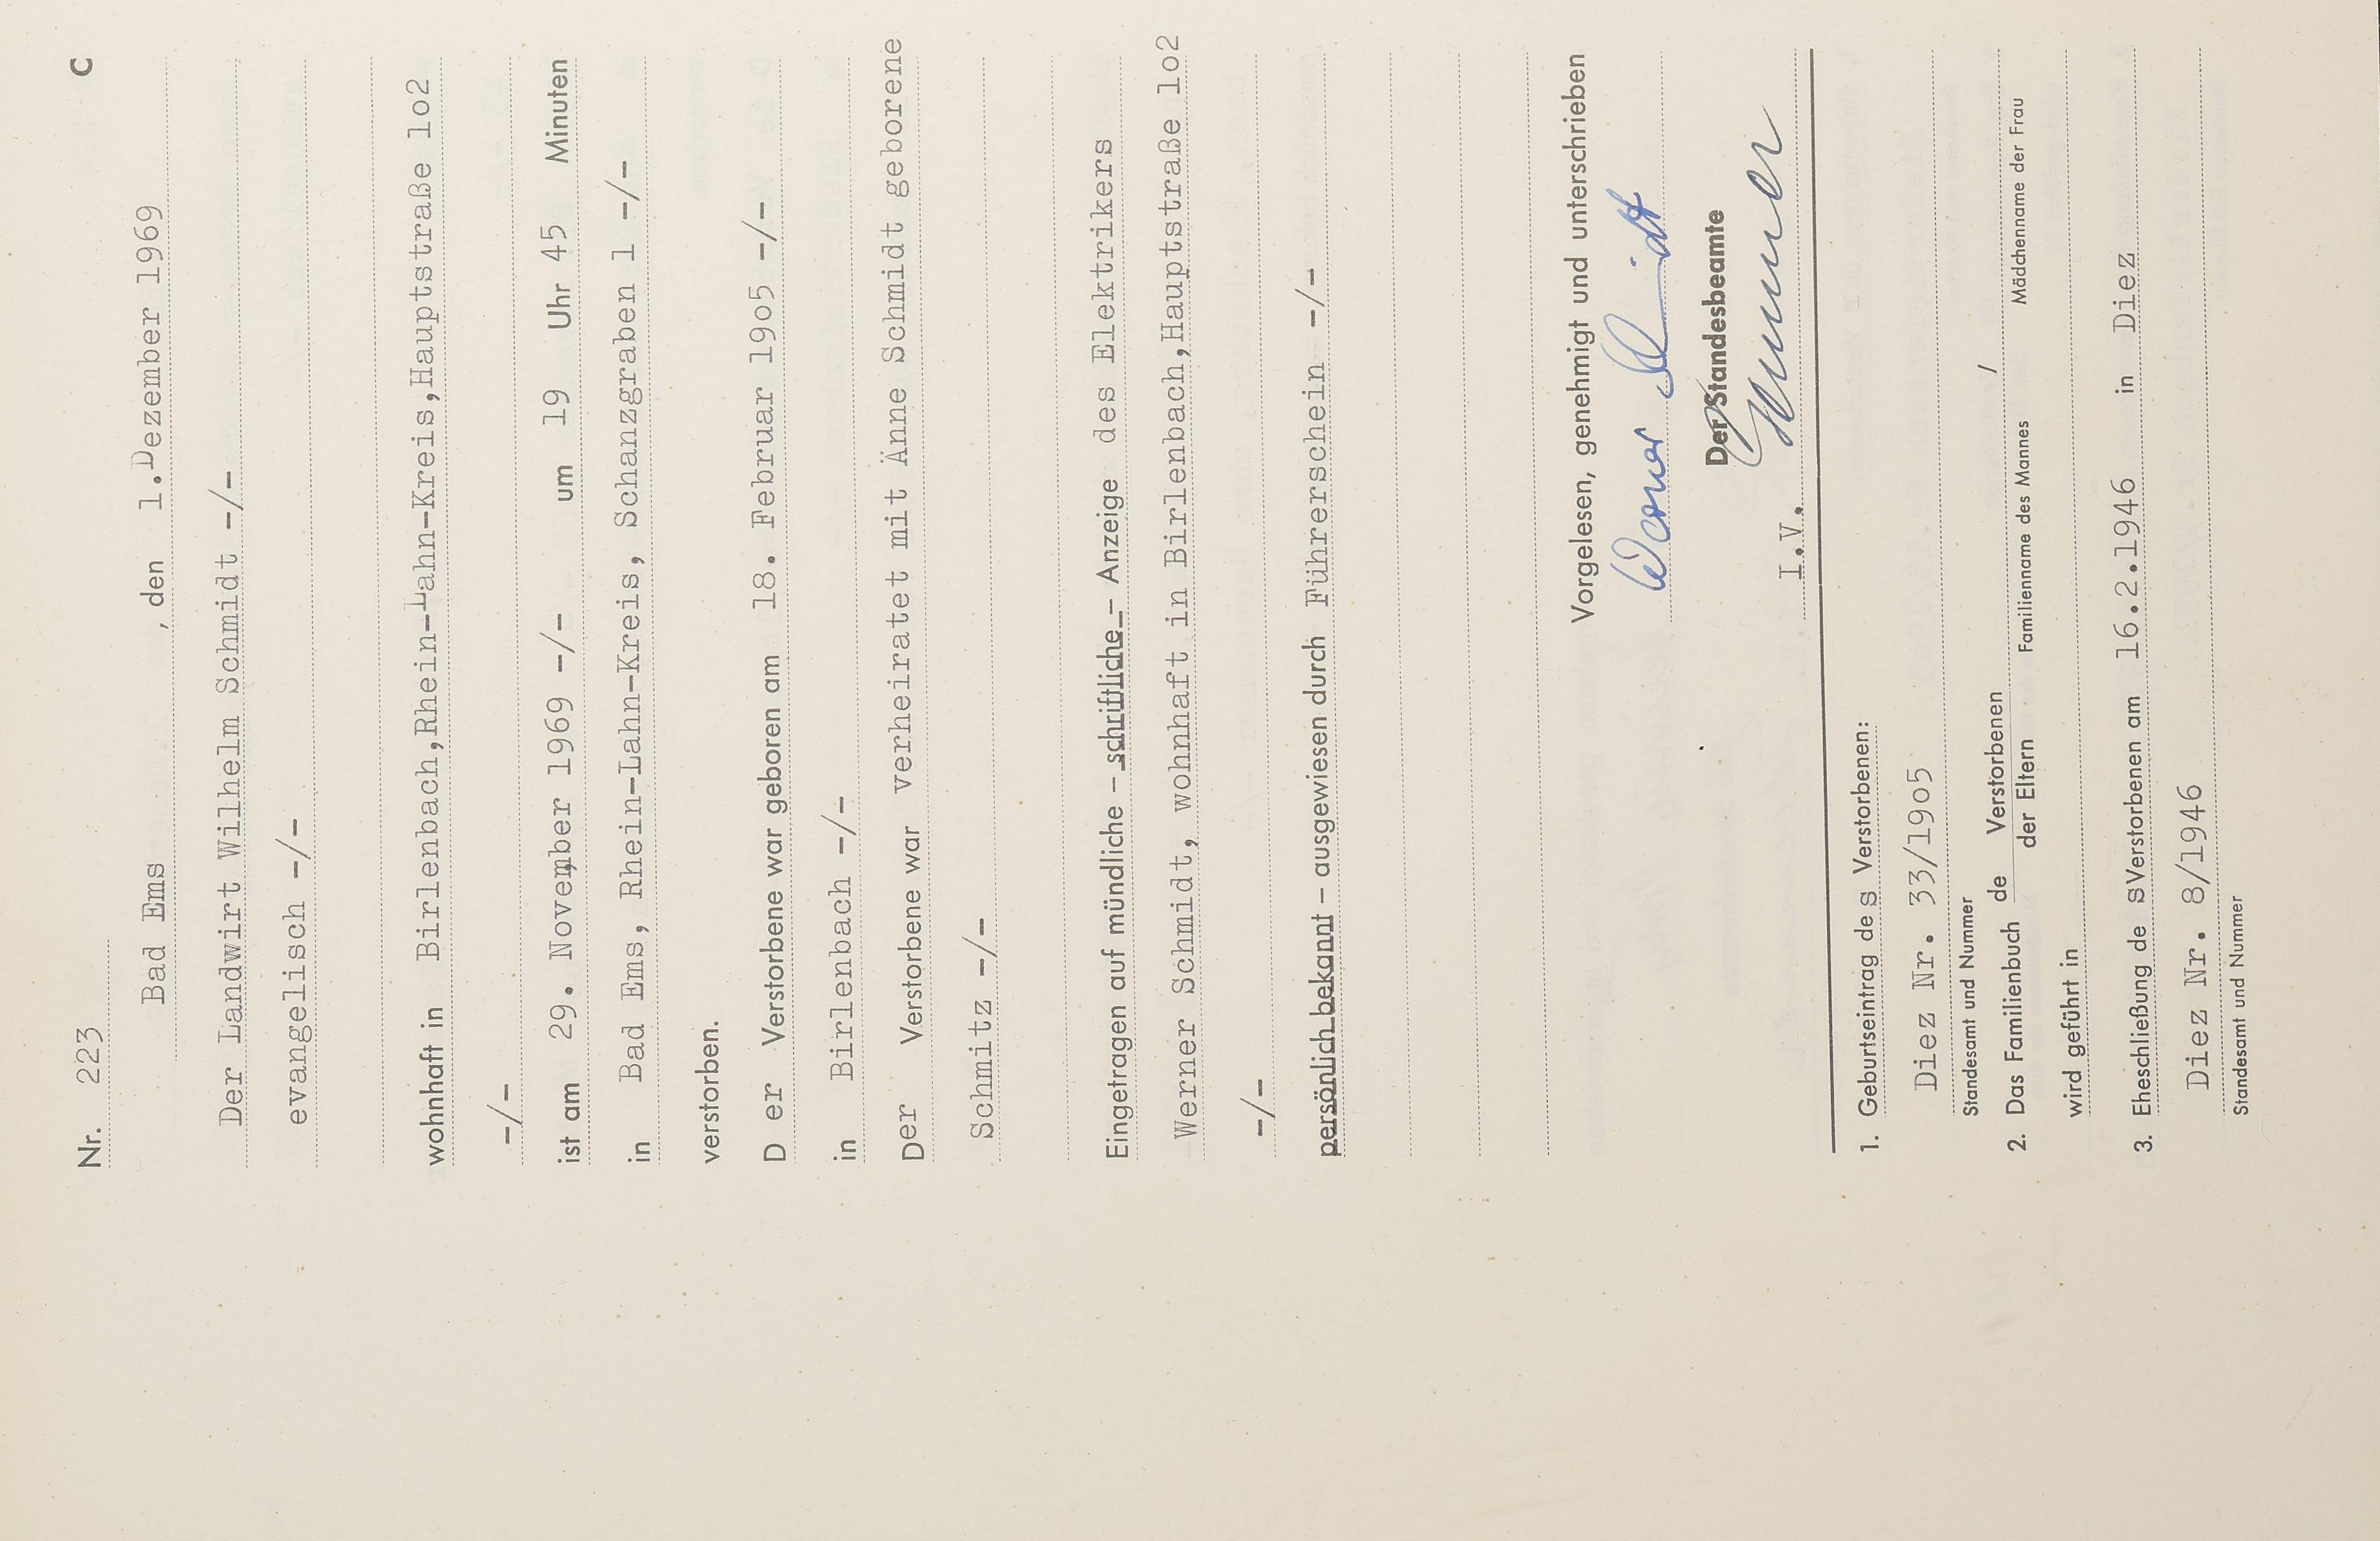 C
Nr. 223
Bad Ems , den 1.Dezember 1969
Der Landwirt Wilhelm Schmidt -/-
evangelisch -/-
wohnhaft in Birlenbach,Rhein-Lahn-Kreis,Hauptstraße 1o2
-/-
ist am 29. November 1969 -/- um 19 Uhr 45 Minuten
in Bad Ems, Rhein-Lahn-Kreis, Schanzgraben 1 -/-
verstorben.
D er Verstorbene war geboren am 18. Februar 19o5 -/-
in Birlenbach -/-
Der Verstorbene war verheiratet mit Änne Schmidt geborene
Schmitz -/-
Eingetragen auf mündliche – schriftliche – Anzeige des Elektrikers
Werner Schmidt, wohnhaft in Birlenbach,Hauptstraße 1o2
-/-
persönlich bekannt – ausgewiesen durch Führerschein -/-
Vorgelesen, genehmigt und unterschrieben
Werner Schmidt
Der Standesbeamte
I.V.
1. Geburtseintrag des Verstorbenen:
Diez Nr. 33/19o5
Standesamt und Nummer
2. Das Familienbuch de Verstorbenen der Eltern /
Familienname des Mannes Mädchenname der Frau
wird geführt in
3. Eheschließung de sVerstorbenen am 16.2.1946 in Diez
Diez Nr. 8/1946
Standesamt und Nummer